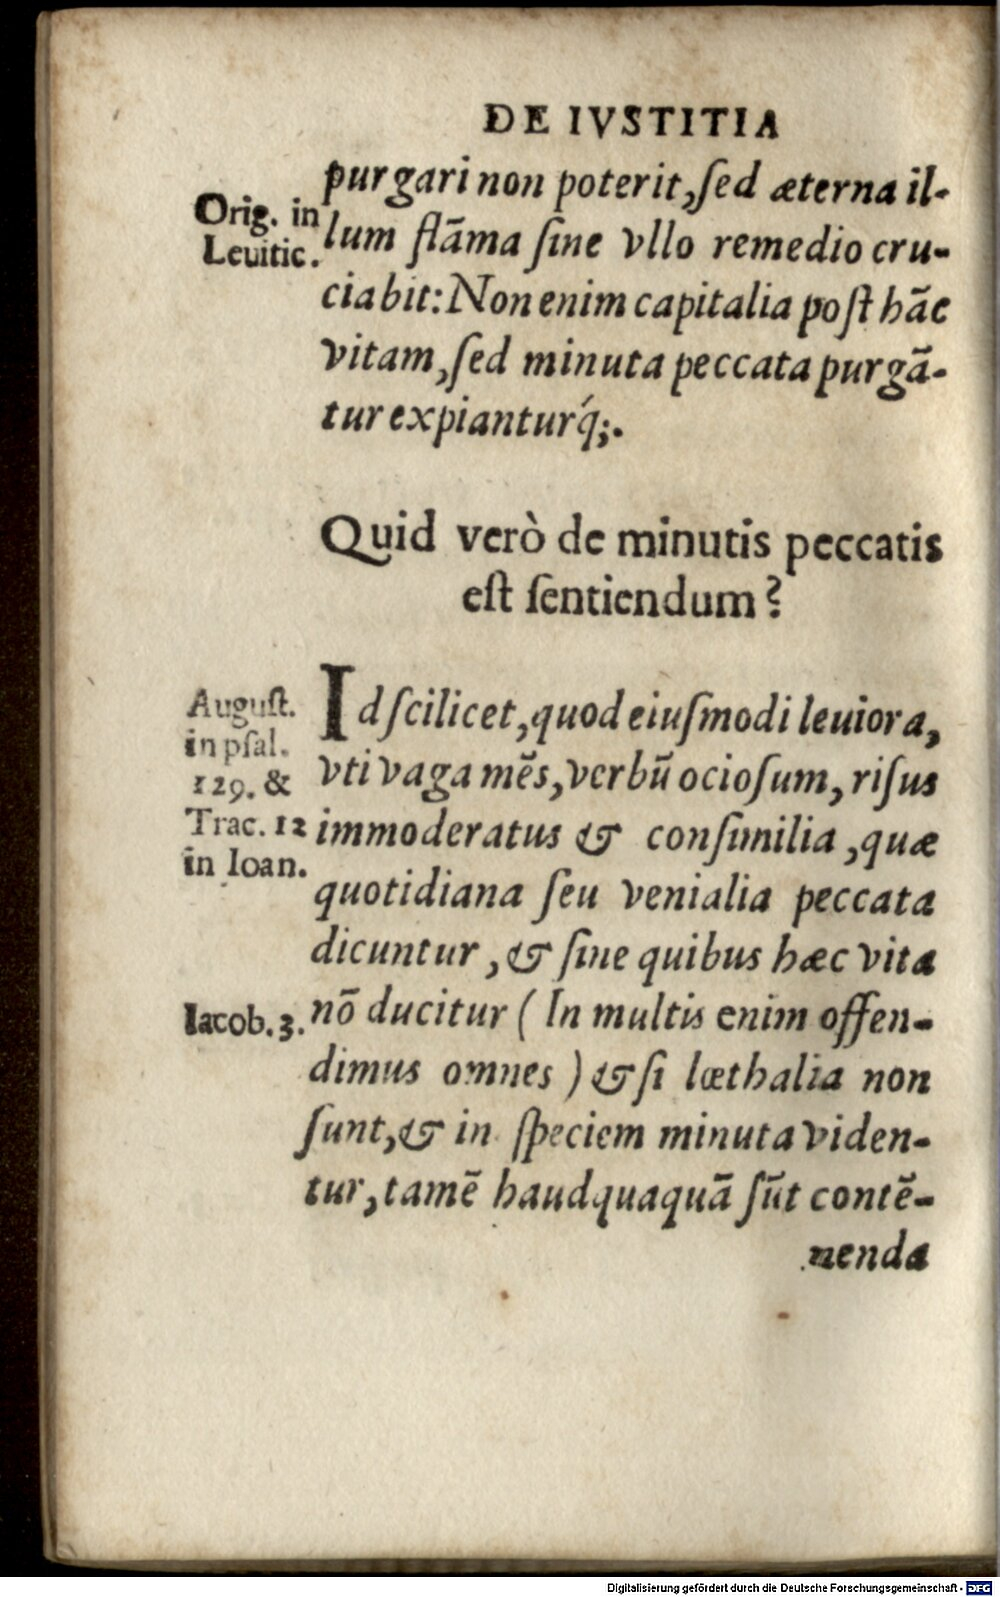 DE IVSTITIA
purgari non poterit, ſed æterna il-
Orig. in
Leuitic.
lum flãma ſine vllo remedio cru-
ciabit: Non enim capitalia poſt hãc
vitam, ſed minuta peccata purgã-
tur expianturq́;.
Quid verò de minutis peccatis
eſt ſentiendum?
Auguſt.
in pſal.
129. &
Trac. 12
in Ioan.
Id ſcilicet, quod eiuſmodi leuiora,
vti vaga mẽs, verbũ ocioſum, riſus
immoderatus & conſimilia, quæ
quotidiana ſeu venialia peccata
dicuntur, & ſine quibus hæc vita
Iacob. 3.
nõ ducitur (In multis enim offen-
dimus omnes) & ſi lœthalia non
ſunt, & in ſpeciem minuta viden-
tur, tamẽ haudquaquã ſũt contẽ-
nenda
Digitalisierung gefördert durch die Deutsche Forschungsgemeinschaft - DFG